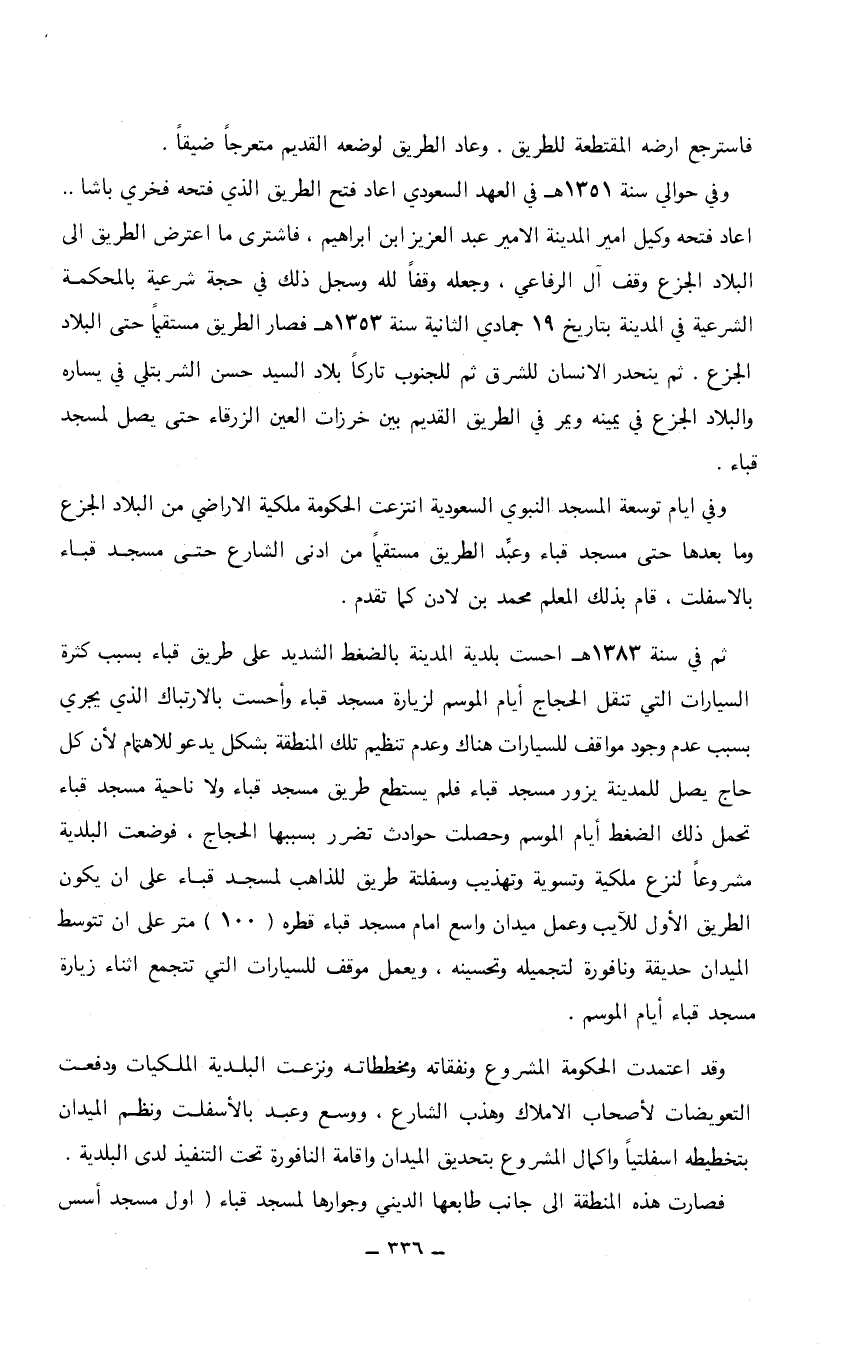 فاسترجع ارضه المقتطعة للطريق . وعاد الطريق لوضعه القديم متعرجاً ضيقاً .
وفي حوالي سنة ١٣٥١هـ في العهد السعودي اعاد فتح الطريق الذي فتحه فخري باشا ..
اعاد فتحه وكيل امير المدينة الامير عبد العزيز ابن ابراهيم ، فاشترى ما اعترض الطريق الى
البلاد الجزع وقف آل الرفاعي ، وجعله وقفاً لله وسجل ذلك في حجة شرعية بالمحكمـة
الشرعية في المدينة بتاريخ ١٩ جمادي الثانية سنة ١٣٥٣هـ فصار الطريق مستقيماً حتى البلاد
الجزع . ثم ينحدر الانسان للشرق ثم للجنوب تاركاً بلاد السيد حسن الشربتلي في يساره
والبلاد الجزع في يمينه ويمر في الطريق القديم بين خرزات العين الزرقاء حتى يصل لمسجد
قباء .
وفي ايام توسعة المسجد النبوي السعودية انتزعت الحكومة ملكية الاراضي من البلاد الجزع
وما بعدها حتى مسجد قباء وعبِّد الطريق مستقيماً من ادنى الشارع حتـى مسجـد قبـاء
بالاسفلت ، قام بذلك المعلم محمد بن لادن كما تقدم .
ثم في سنة ١٣٨٣هـ احست بلدية المدينة بالضغط الشديد على طريق قباء بسبب كثرة
السيارات التي تنقل الحجاج أيام الموسم لزيارة مسجد قباء وأحست بالارتباك الذي يجري
بسبب عدم وجود مواقف للسيارات هناك وعدم تنظيم تلك المنطقة بشكل يدعو للاهتمام لأن كل
حاج يصل للمدينة يزور مسجد قباء فلم يستطع طريق مسجد قباء ولا ناحية مسجد قباء
تحمل ذلك الضغط أيام الموسم وحصلت حوادث تضرر بسببها الحجاج ، فوضعت البلدية
مشروعاً لنزع ملكية وتسوية وتهذيب وسفلتة طريق للذاهب لمسجـد قبـاء على ان يكون
الطريق الأول للآيب وعمل ميدان واسع امام مسجد قباء قطره ( ١٠٠ ) متر على ان تتوسط
الميدان حديقة ونافورة لتجميله وتحسينه ، ويعمل موقف للسيارات التي تتجمع اثناء زيارة
مسجد قباء أيام الموسم .
وقد اعتمدت الحكومة المشروع ونفقاته ومخططاتـه ونزعـت البلـدية الملـكيات ودفعـت
التعويضات لأصحاب الاملاك وهذب الشارع ، ووسـع وعبـد بالأسفلـت ونظـم الميدان
بتخطيطه اسفلتياً واكمال المشروع بتحديق الميدان واقامة النافورة تحت التنفيذ لدى البلدية .
فصارت هذه المنطقة الى جانب طابعها الديني وجوارها لمسجد قباء ( اول مسجد أسس
ـ ٣٣٦ ـ